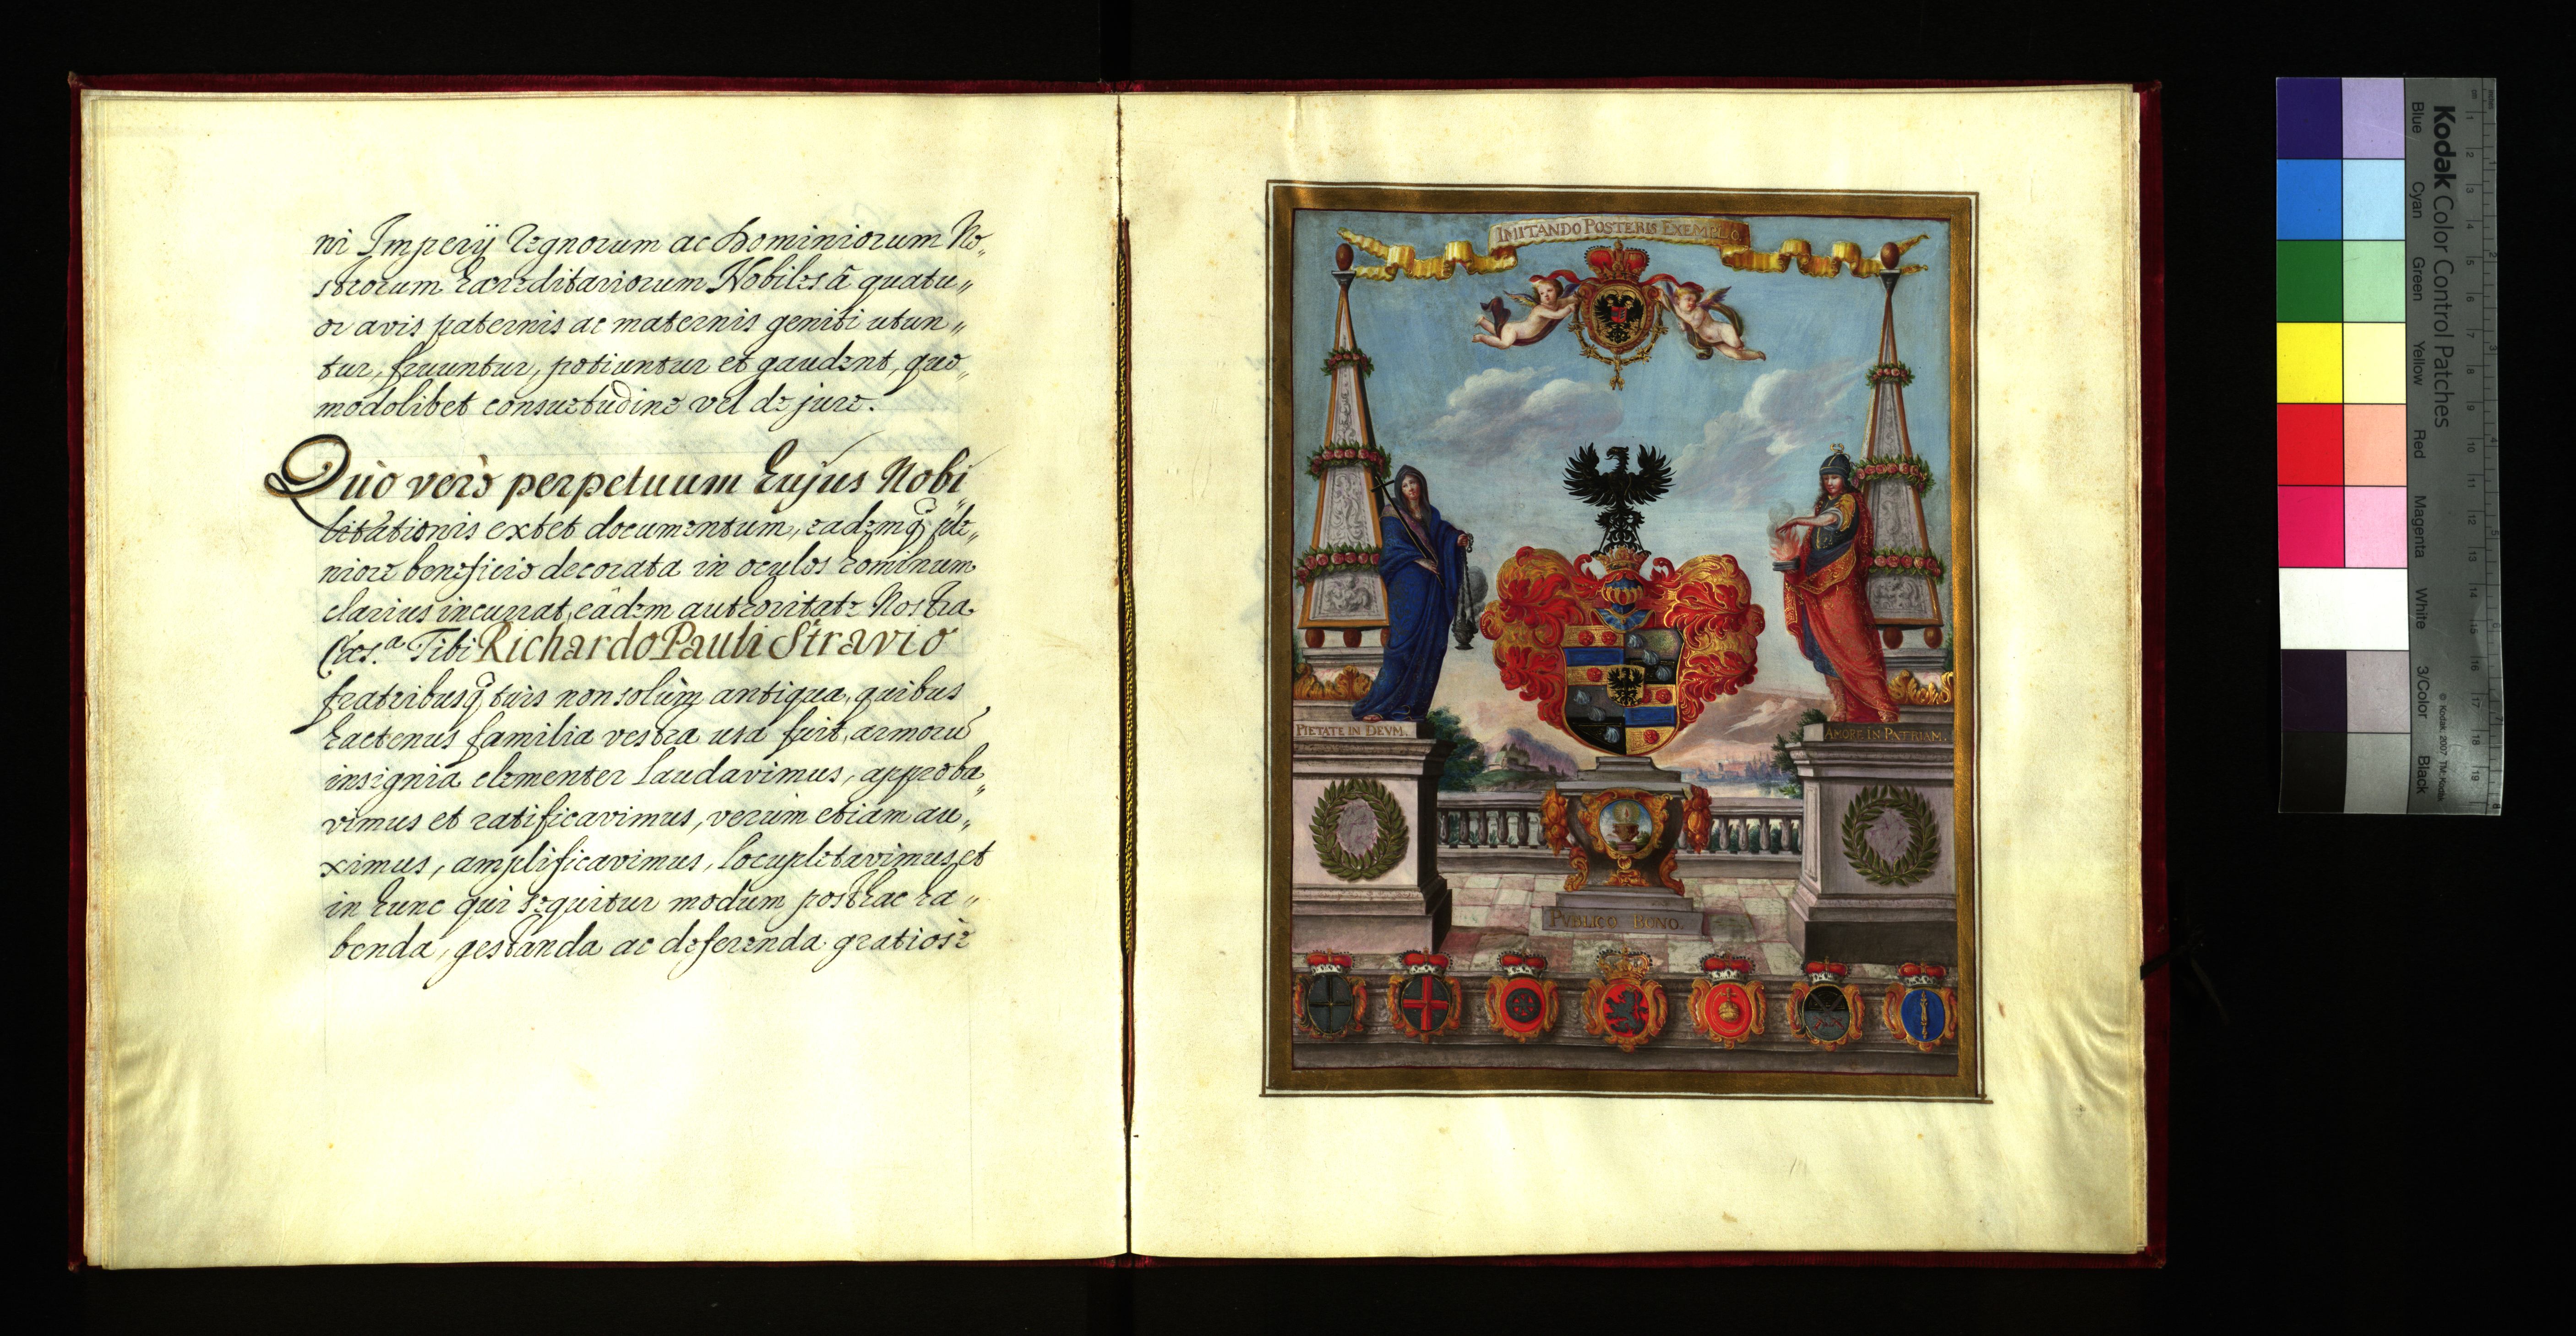 ni Imperÿ Regnorum ac Dominiorum No„
strorum haereditariorum Nobiles à quatu„
or avis paternis ac maternis geniti utun„
tur, fruuntur, potiuntur et gaudent, quo„
modolibet consuetudine vel de jure.
Quo verò perpetuum hujus Nobi„
litationis extet documentum, eademq̃ ple„
niore beneficio decorata in oculos hominum
clarius incurrat, eâdem authoritate Nostra
Caes.ª Tibi Richardo Pauli Stravio
fratribusq̃ tuis non solùm antiqua, quibus
hactenus familia vestra usa fuit, armorū
insignia clementer laudavimus, approba„
vimus et ratificavimus, verùm etiam au„
ximus, amplificavimus, locupletavimus, et
in hunc qui sequitur modum posthac ha„
benda, gestanda ac deferenda gratiosè
IMITANDO POSTERIS EXEMPLO.
PIETATE IN DEVM.
AMORE IN PATRIAM.
PVBLICO BONO.
Kodak Color Control Patches
Blue Cyan Green Yellow Red Magenta White 3/Color Black
© Kodak, 2007 TM: Kodak
inches
cm 1 2 3 4 5 6 7 8 9 10 11 12 13 14 15 16 17 18 19